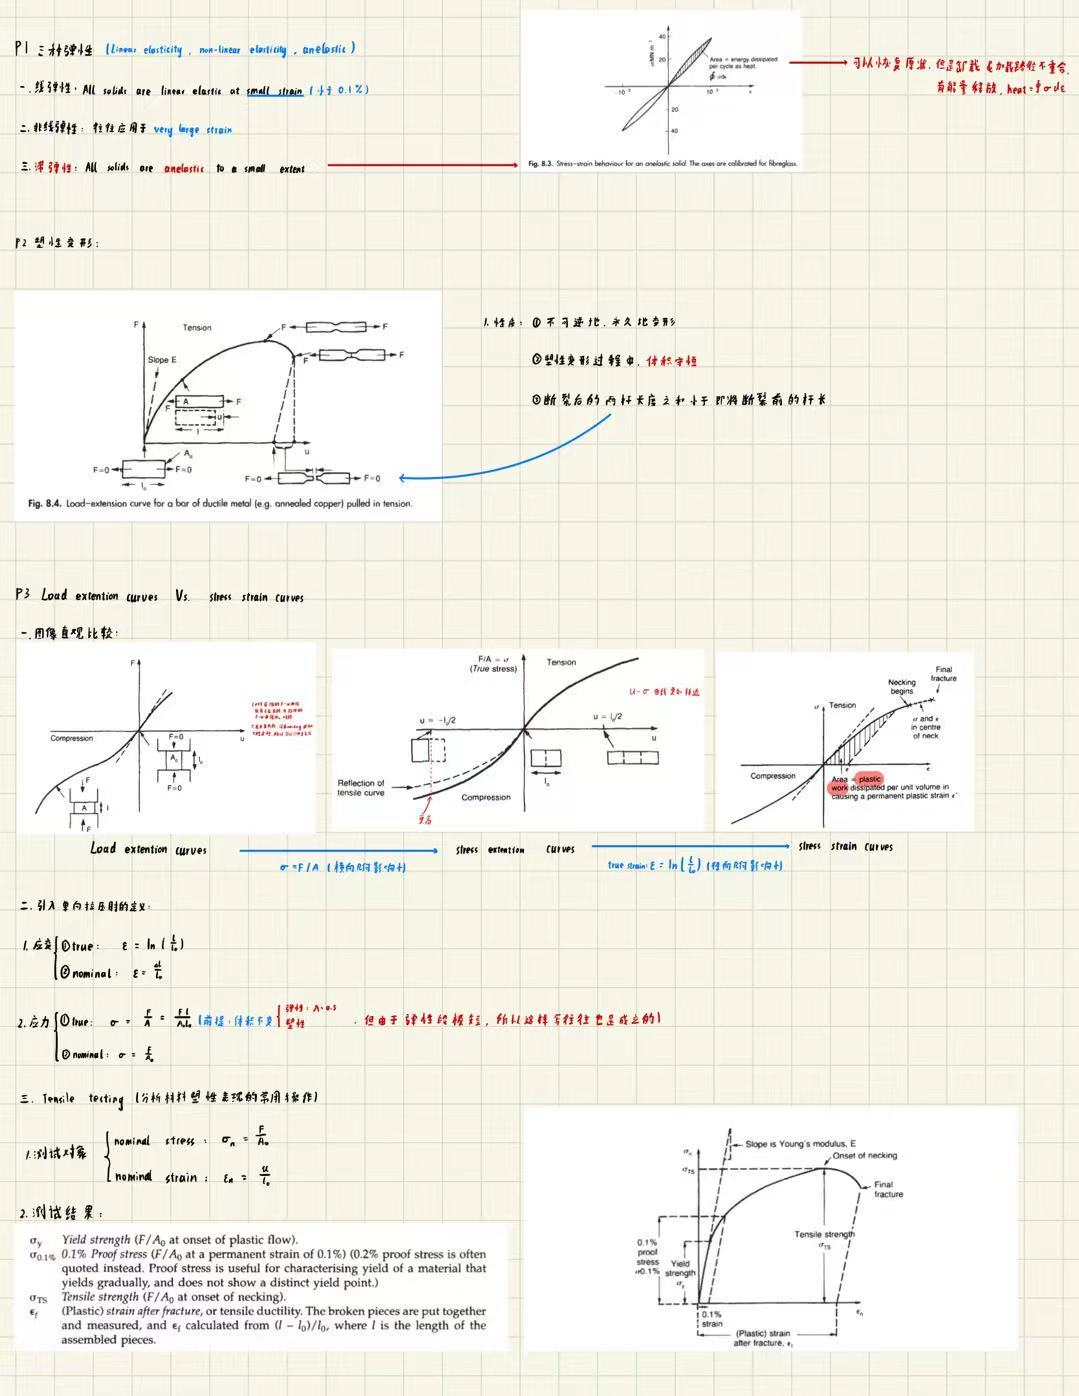 P1 三种弹性 (Linear elasticity, non-linear elasticity, anelastic)
一. 线弹性: All solids are linear elastic at small strain (小于 0.1%)
二. 非线弹性: 往往应用于 very large strain
三. 滞弹性: All solids are anelastic to a small extent
40
20
σ/MN m⁻²
Area = energy dissipated
per cycle as heat.
∮ σ dε
20
40
Fig. 8.3. Stress–strain behaviour for an anelastic solid. The axes are calibrated for fibreglass.
可以恢复原状, 但是卸载 & 加载路径不重合,
有能量释放, heat = ∮σdε
P2 塑性变形:
F
Tension
Slope E
F
F
F
F
F
A
F
u
l
u
A₀
F=0
F=0
l₀
F=0
F=0
Fig. 8.4. Load–extension curve for a bar of ductile metal (e.g. annealed copper) pulled in tension.
1. 性质: ① 不可逆地, 永久地变形
② 塑性变形过程中, 体积守恒
③ 断裂后的两杆长度之和小于即将断裂前的杆长
P3 Load extention curves Vs. stress strain curves
一. 图像直观比较:
F
Compression
u
F=0
A₀
l₀
F=0
F
A
l
F
F/A = σ
(True stress)
Tension
u-σ 曲线更加接近
u = −l₀/2
u = l₀/2
u
l₀
Reflection of
tensile curve
Compression
Final
fracture
Necking
begins
σ
Tension
σ and ε
in centre
of neck
ε
Compression
Area = plastic
work dissipated per unit volume in
causing a permanent plastic strain
Load extention curves
σ = F/A (横向几何影响小)
stress extention curves
true strain: ε = ln(l/l₀)
stress strain curves
二. 引入单向拉压时的定义:
1. 应变 ① true: ε = ln(l/l₀)
② nominal: ε = Δl/l₀
2. 应力 ① true: σ = F/A = Fl/A₀l₀ (前提: 体积不变 弹性: 0.5 塑性, 但由于弹性段极短, 所以这样写往往也是成立的)
② nominal: σ = F/A₀
三. Tensile testing (分析材料塑性表现的常用操作)
1. 测试对象 nominal stress: σn = F/A₀
nominal strain: εn = u/l₀
2. 测试结果:
σy Yield strength (F/A₀ at onset of plastic flow).
σ0.1% 0.1% Proof stress (F/A₀ at a permanent strain of 0.1%) (0.2% proof stress is often
quoted instead. Proof stress is useful for characterising yield of a material that
yields gradually, and does not show a distinct yield point.)
σTS Tensile strength (F/A₀ at onset of necking).
εf (Plastic) strain after fracture, or tensile ductility. The broken pieces are put together
and measured, and εf calculated from (l − l₀)/l₀, where l is the length of the
assembled pieces.
σn
Slope is Young's modulus, E
Onset of necking
σTS
Final
fracture
Tensile strength
σTS
0.1%
proof
stress
σ0.1%
Yield
strength
σy
εn
0.1%
strain
(Plastic) strain
after fracture, εf